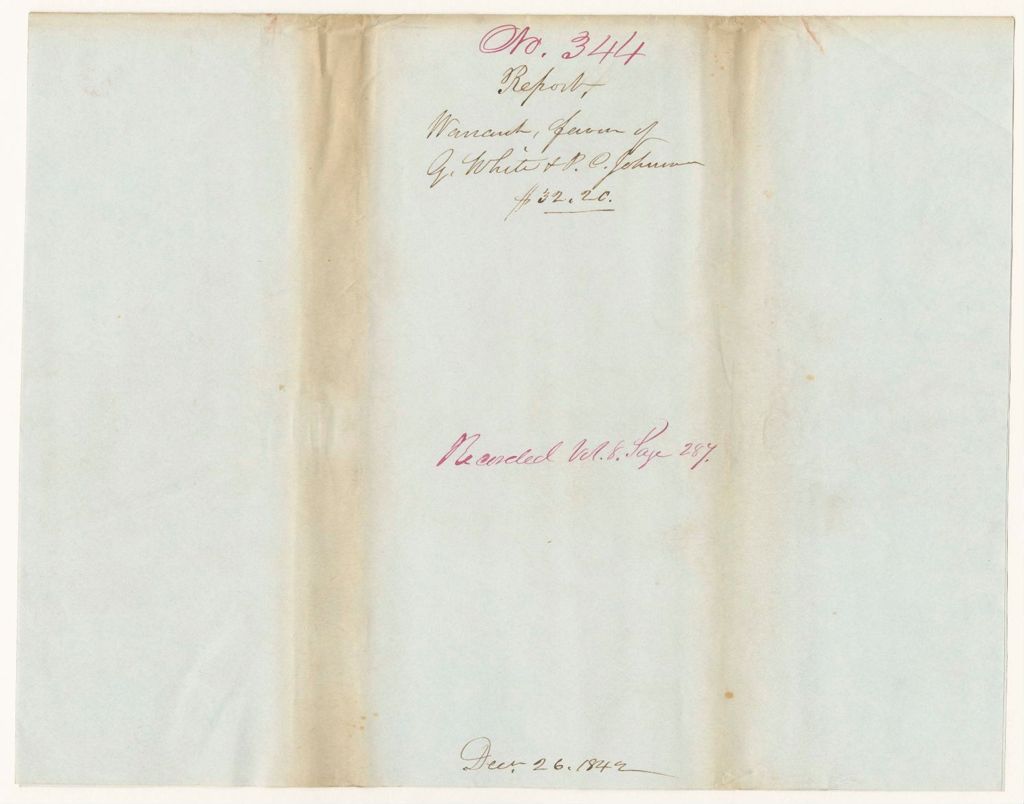 No. 344
Report,
Warrant, favor of
G. White & P. C. Johnson
$32.20.
Recorded Vol. 8. Page 287.
Decr. 26. 1842